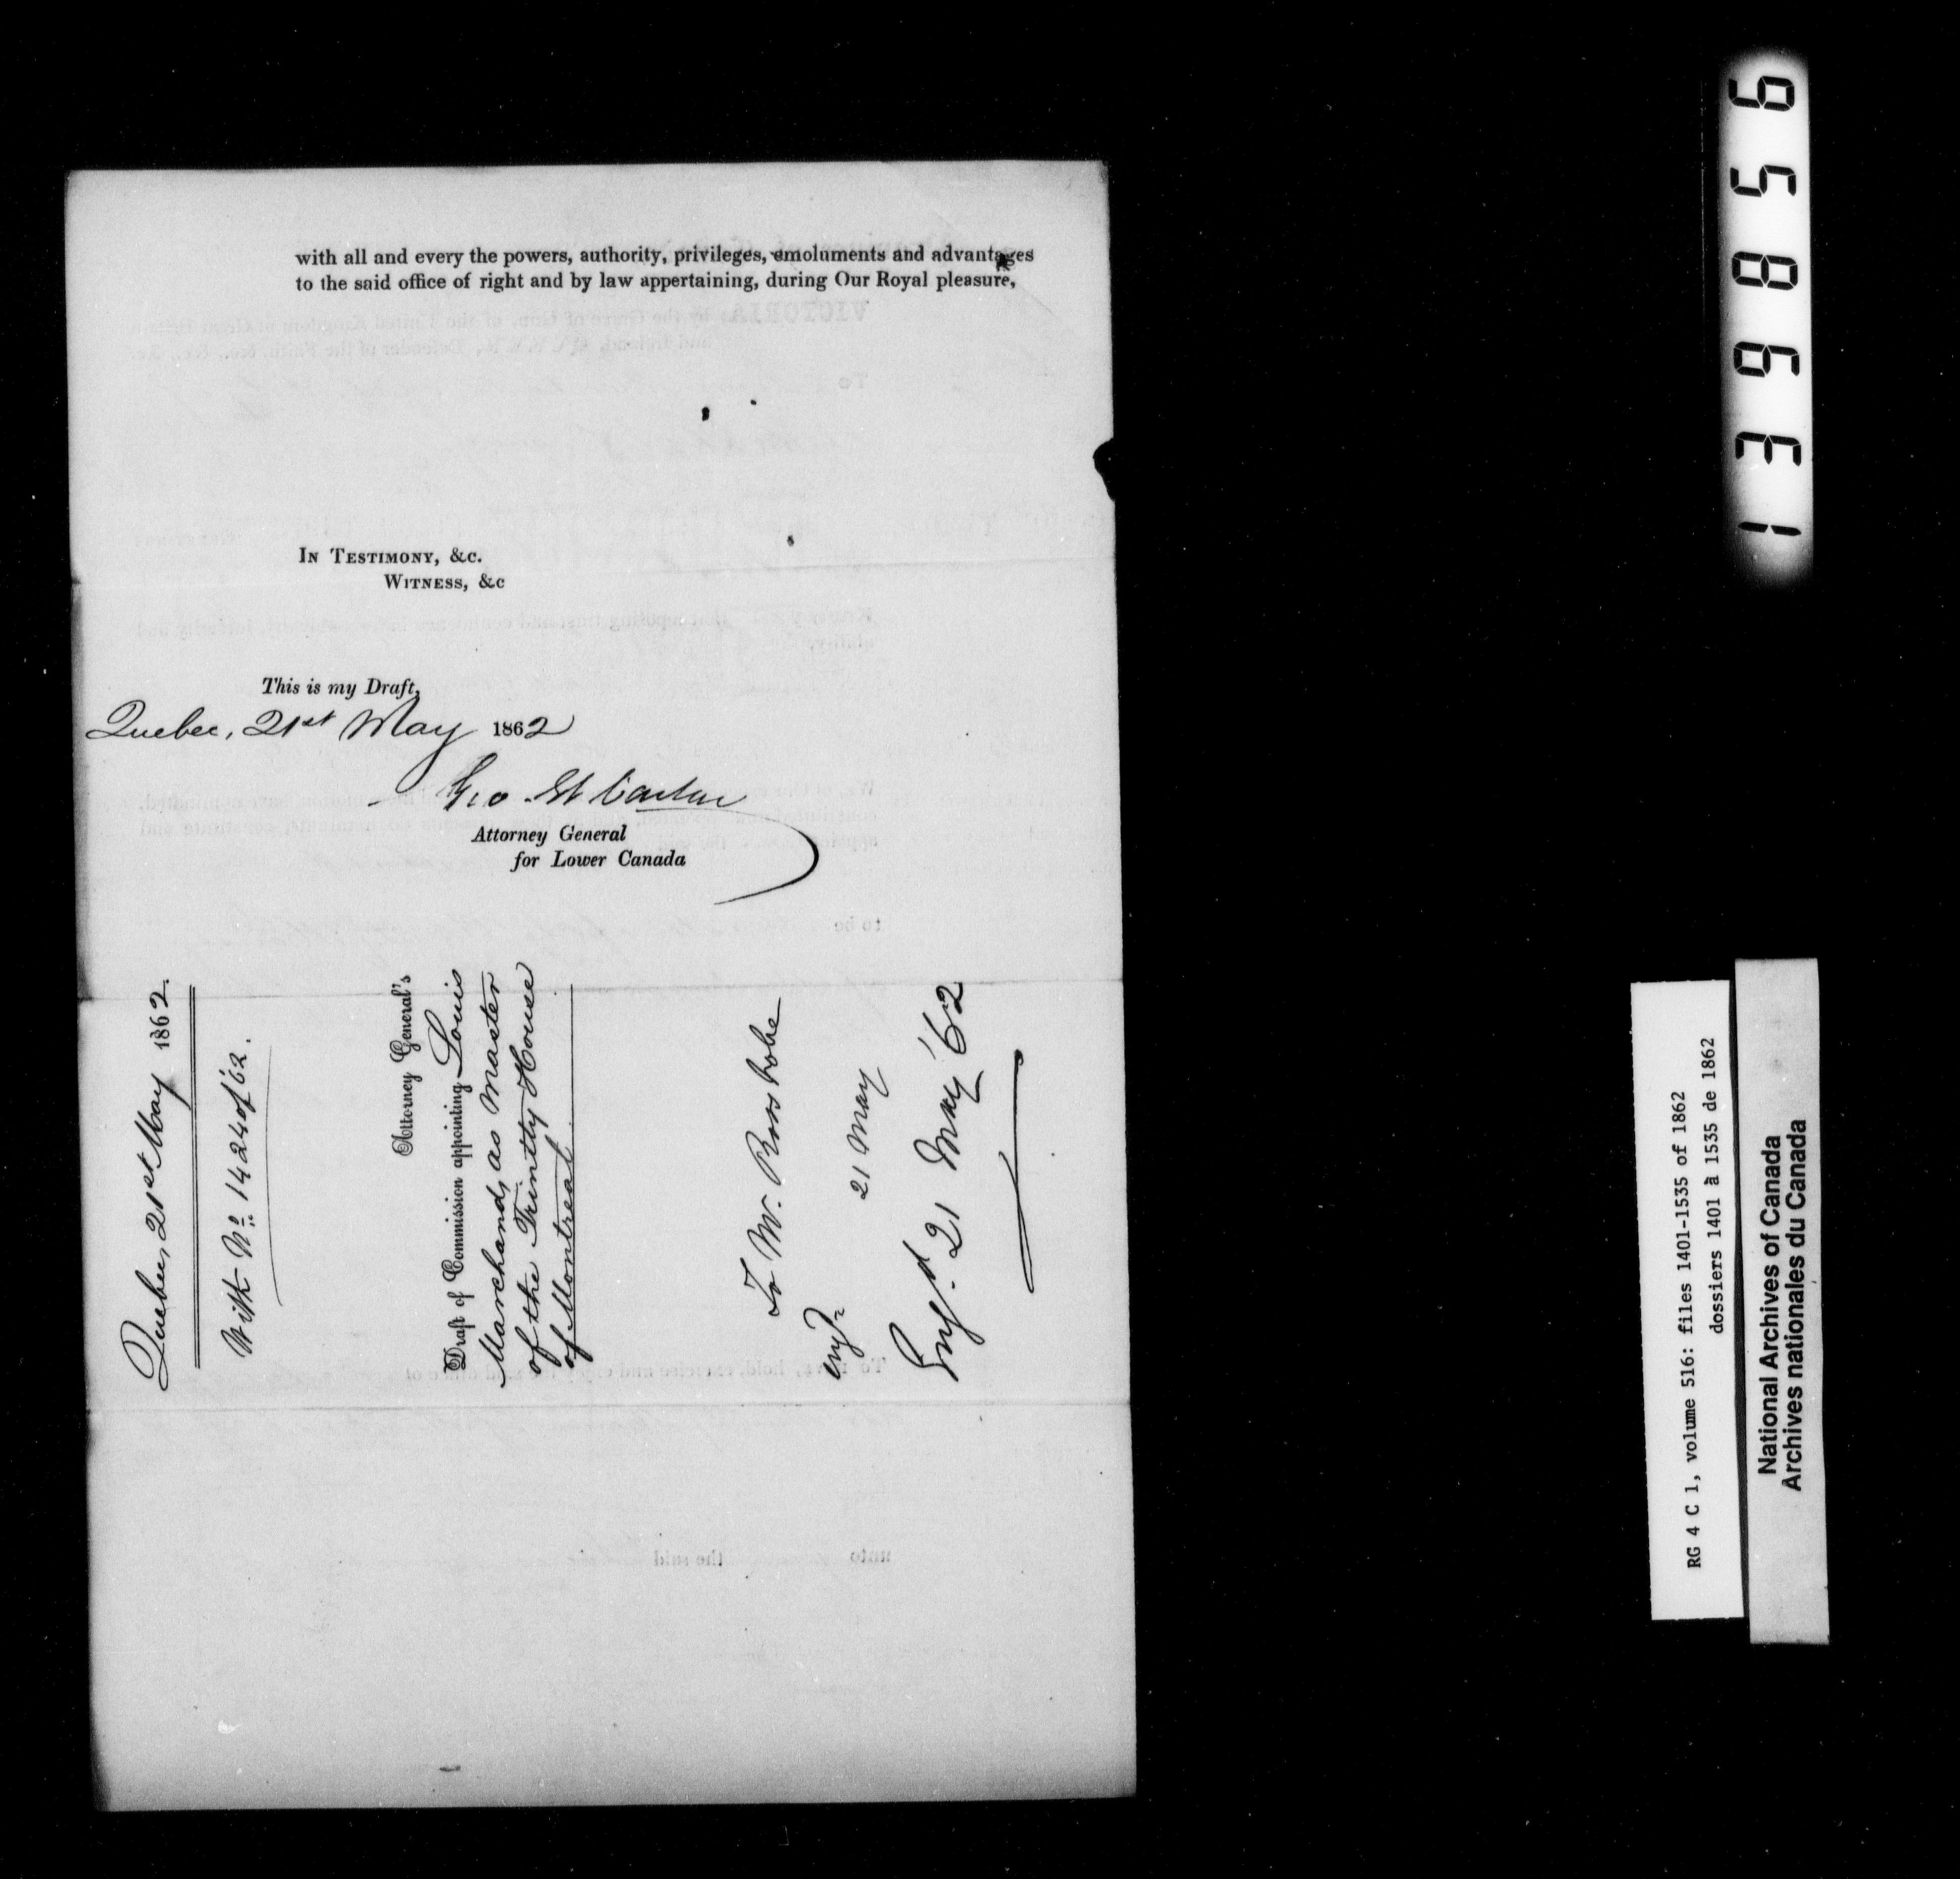 with all and every the powers, authority, privileges, emoluments and advantages
to the said office of right and by law appertaining, during Our Royal pleasure,
In Testimony, &c.
Witness, &c
This is my Draft,
Quebec, 21st May 1862
Geo. Et Cartier
Attorney General
for Lower Canada
Quebec, 21st May 1862.
With No. 1424 of '62.
Attorney General's
Draft of Commission appointing Louis
Marchand, as Master
of the Trinity House
of Montreal
To Mr. Ross to be
21 May
Engd. 21 May '62
139856
RG 4 C 1, volume 516: files 1401-1535 of 1862
dossiers 1401 à 1535 de 1862
National Archives of Canada
Archives nationales du Canada